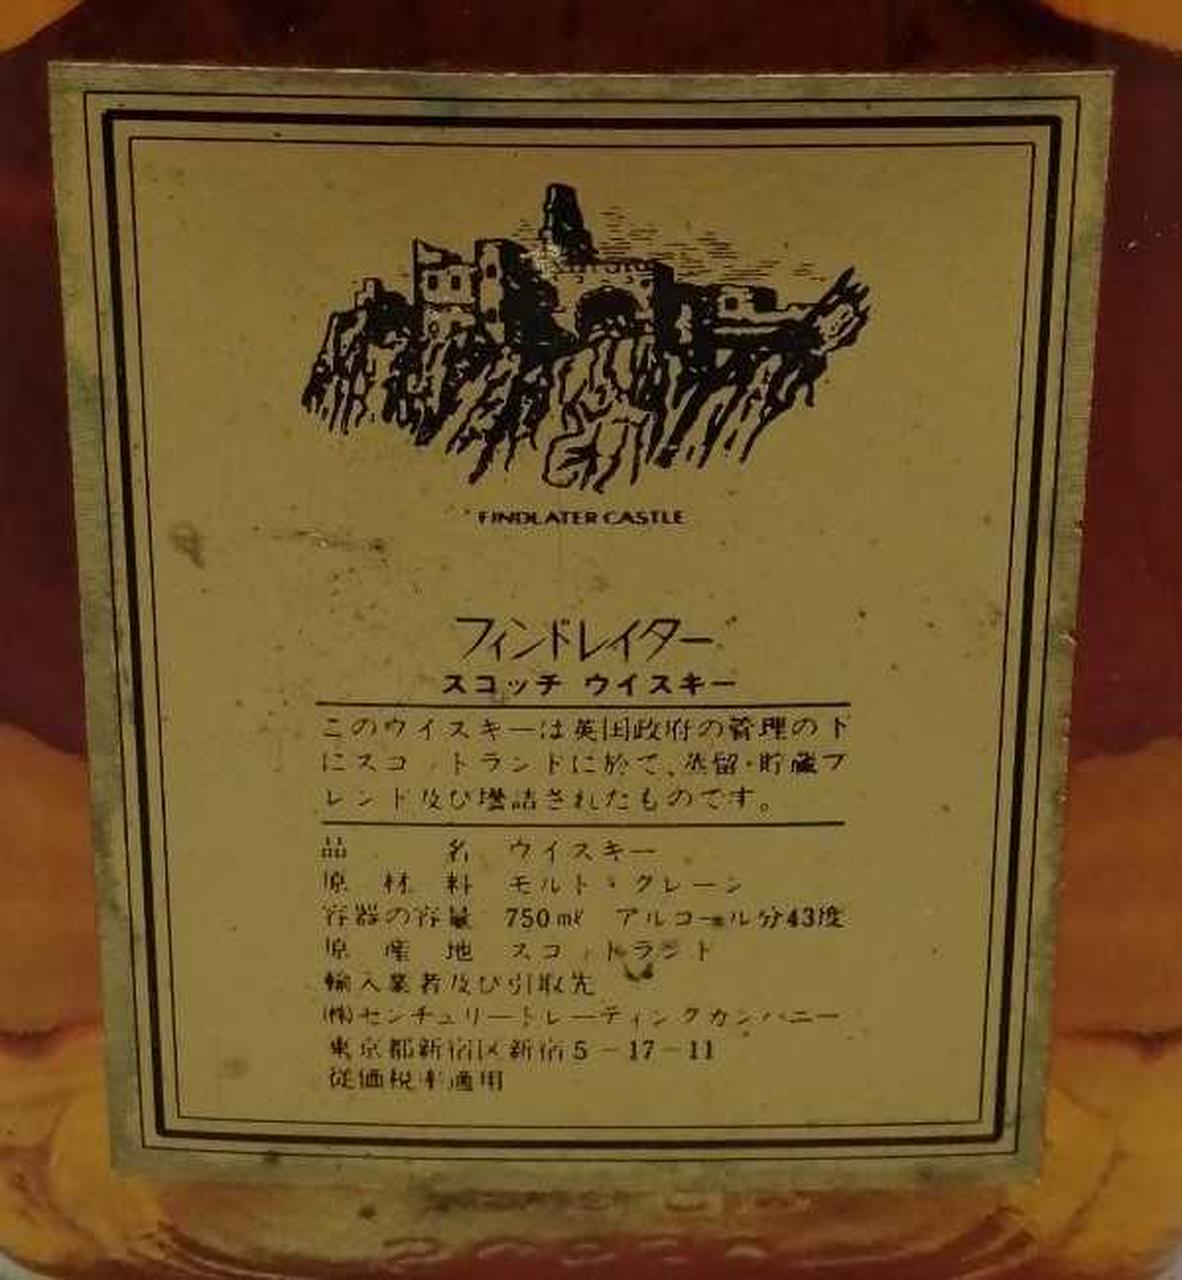 FINDLATER CASTLE
フィンドレイター
スコッチ ウイスキー
このウイスキーは英国政府の管理の下
にスコットランドに於て、蒸留・貯蔵ブ
レンド及び壜詰されたものです。
品名 ウイスキー
原材料 モルト・グレーン
容器の容量 750ml アルコール分43度
原産地 スコットランド
輸入業者及び引取先
(株)センチュリートレーディングカンパニー
東京都新宿区新宿5-17-11
従価税率適用